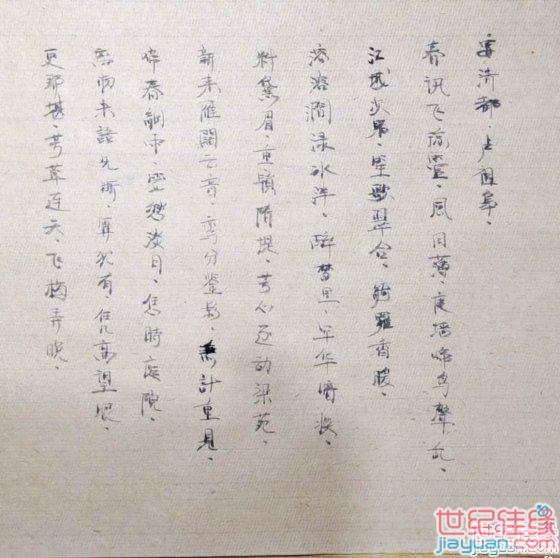 宴清都、卢祖皋、
春讯飞琼管、風日薄、度墙啼鸟聲乱、
江城次第、笙歌翠合、綺羅香暖、
溶溶澗渌冰泮、醉梦里、年华暗换、
料黛眉、重鎖隋堤、芳心还动梁苑、
新来雁闊云音、鸾分鉴影、無计重見、
啼春細雨、笼愁淡月、恁時庭院、
离肠未語先断、算犹有、凭高望眼、
更那堪、芳草连天、飞梅弄晚、
世纪佳缘
jiayuan.com